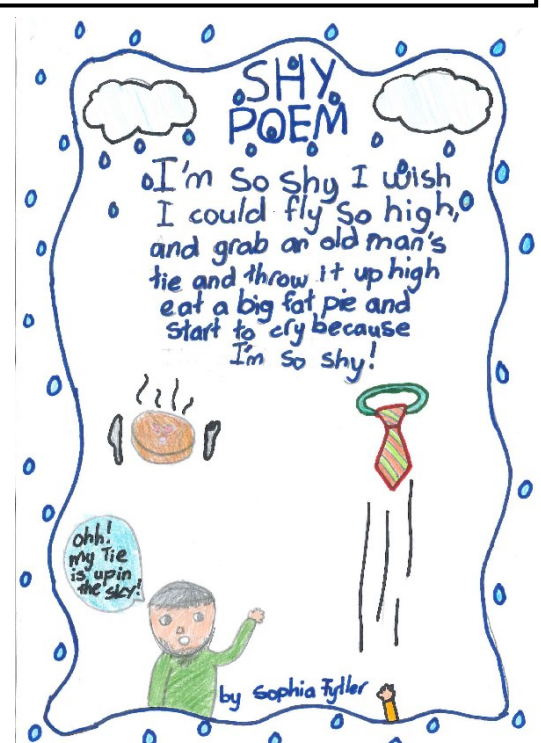 SHY
POEM
I'm so shy I wish
I could fly so high,
and grab an old man's
tie and throw it up high
eat a big fat pie and
start to cry because
I'm so shy!
ohh!
my Tie
is up in
the sky!
by Sophia Fytler